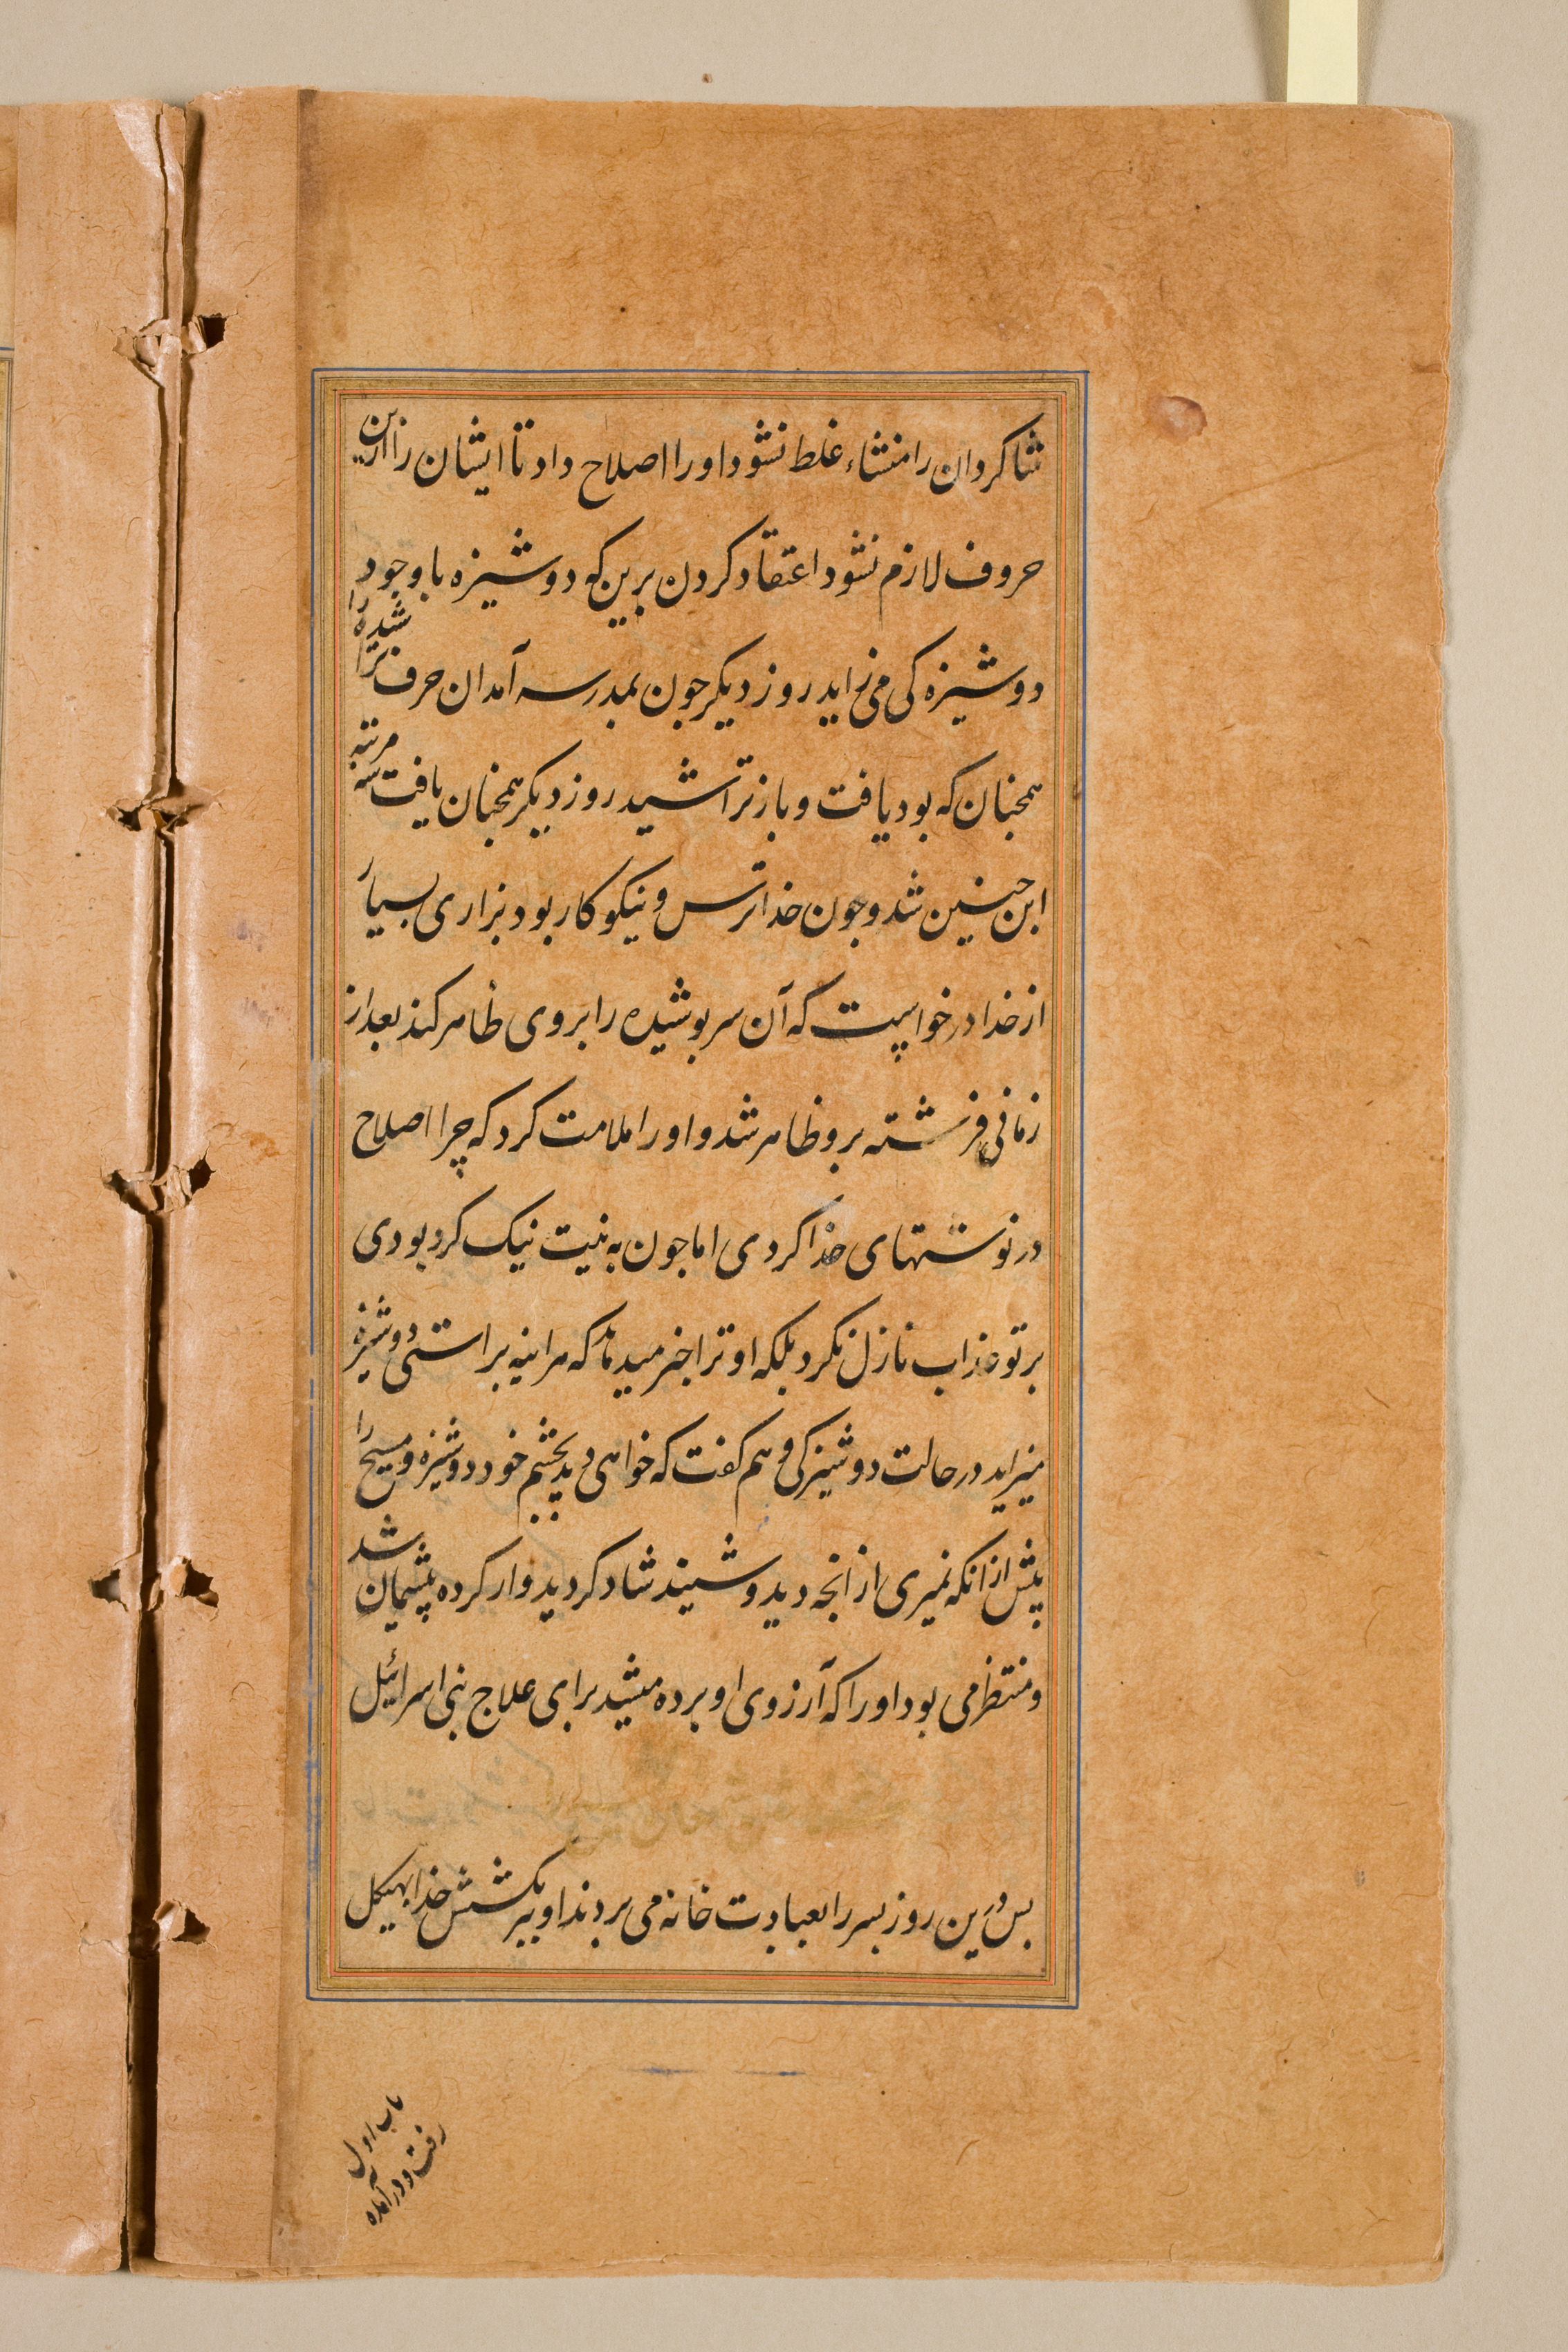 شاکردان را منشاء غلط نشود او را اصلاح داد تا ایشان را ازین
حروف لازم نشود اعتقاد کردن برین که دوشیزه باوجود
دوشیزه کی می زاید روز دیکر جون بمدرسه آمد ان حرف تراشیده را
همجنان که بود یافت و باز تراشید روز دیکر همجنان یافت سه مرتبه
این جنین شد و جون خداترس و نیکو کار بود بزاری بسیار
از خدا درخواست که آن سر بوشیده را بروی ظاهر کند بعد از
زمانی فرشته برو ظاهر شد و او را ملامت کرد که چرا اصلاح
در نوشتهای خدا کردی اما جون به نیت نیک کرد بودی
بر تو عذاب نازل نکرد بلکه او ترا خبر میدهد که هراینه براستی دوشیزه
میزاید در حالت دوشیزکی و هم کفت که خواهی دید بچشم خود دوشیزه و مسیح را
پیش از انکه نمیری از انجه دید و شنید شاد کردید و از کرده پشیمان شد
و منتظر می بود او را که آرزوی او برده میشد برای علاج بنی اسرائیل
بس درین روز بسر را بعبادت خانه می بردند او ببر کشش خدا بهیکل
رفت و درآمده
باب اول